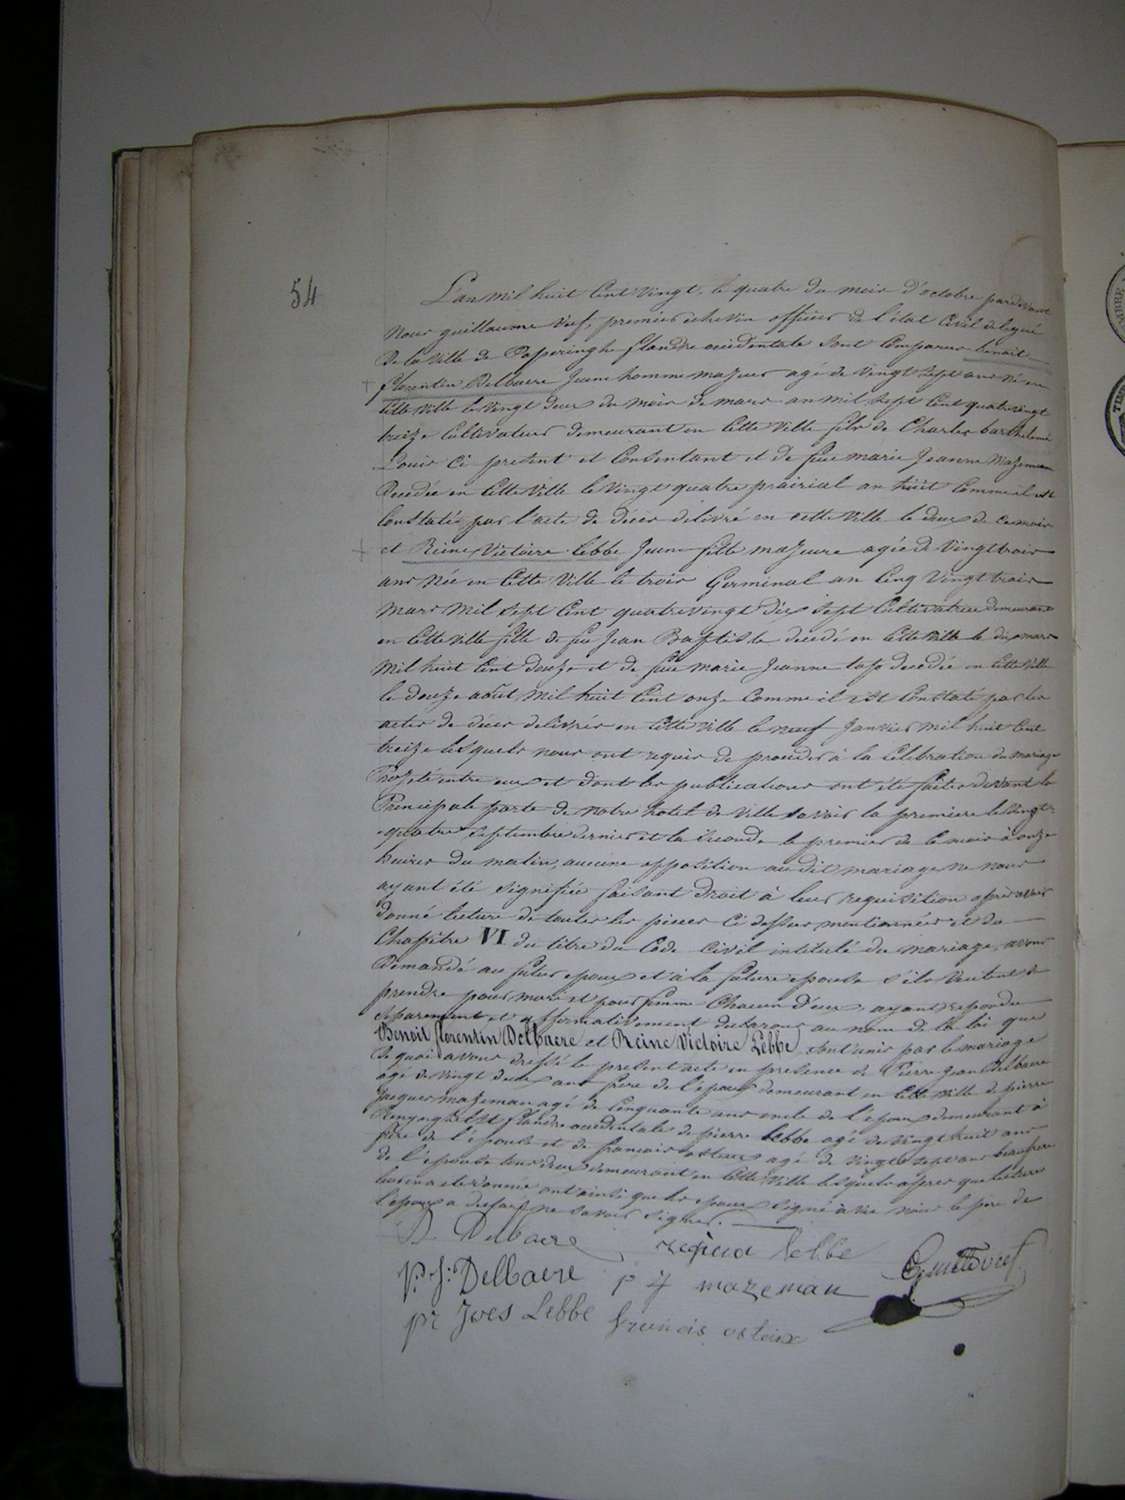 54
L'an mil huit Cent vingt, le quatre du mois d'octobre pardevant
Nous guillaume vuf. premier echevin officier de l'état Civil delegué
De la ville de Poperinghe flandre occidentale Sont Comparus benoit
florentin Delbaere Jeune homme majeur agé de Vingt Sept ans né en
Cette ville le vingt deux du mois de mars an mil Sept Cent quatrevingt
treize Cultivateur demeurant en Cette Ville fils de Charles barthelemi
Louis Ci present et Consentant et de feue marie Jeanne Mazeman
Decedée en Cette Ville le Vingt quatre prairial an huit Comme il est
Constatée par l'acte de décès delivré en cette ville le deux de ce mois
et Reine Victoire Lebbe Jeune fille majeure agée de Vingt trois
ans Née en Cette Ville le trois Germinal an Cinq Vingt trois
mars mil Sept Cent quatrevingt dix Sept Cultivatrice demeurant
en Cette ville fille de feu Jean Baptiste decedé en Cette Ville le dix mars
Mil huit Cent douze et de feue marie Jeanne decedée en Cette Ville
le douze août Mil huit Cent onze Comme il est Constaté par les
actes de décès delivrés en Cette Ville le neuf Janvier Mil huit Cent
treize lesquels nous ont requis de proceder à la Célébration du mariage
Projeté entre eux et dont les publications ont été faites devant la
Principale porte de notre hotel de Ville Savoir la premiere le Vingt-
quatre Septembre dernier et la Seconde le premier de Ce mois à onze
heures du matin, aucune opposition au dit mariage ne nous
ayant été Signifiée faisant Droit à leur requisition après avoir
donné lecture de toutes les pieces Ci dessus mentionnées et du
Chapitre VI du titre du Code Civil intitulé du mariage, avons
Demandé au futur epoux et à la future epouse S'ils veulent se
prendre pour mari et pour femme Chacun d'eux, ayant repondu
Séparement et affirmativement declarons au nom de la loi que
Benoit florentin Delbaere et Reine Victoire Lebbe Sont unis par le mariage
De quoi avons dressé le present acte en presence de Pierre Jean Delbaere
agé de vingt deux ans frere de l'epoux demeurant en Cette Ville de pierre
Jacques mazeman agé de Cinquante ans oncle de l'epoux demeurant à
Renyenghelst flandre occidentale de pierre Lebbe agé de vingt huit ans
frere de l'epouse et de francois agé de vingt Sept ans beaufrere
de l'epouse tous deux demeurant en Cette Ville lesquels apres que lecture
leur en a été donnée ont ainsi que les epoux Signé avec nous le pere de
l'epoux a declaré ne Savoir Signer.
B. Delbaere regina lebbe
P. J: Delbaere p J mazeman Guill Vuf
pr Ives Lebbe francis osteux